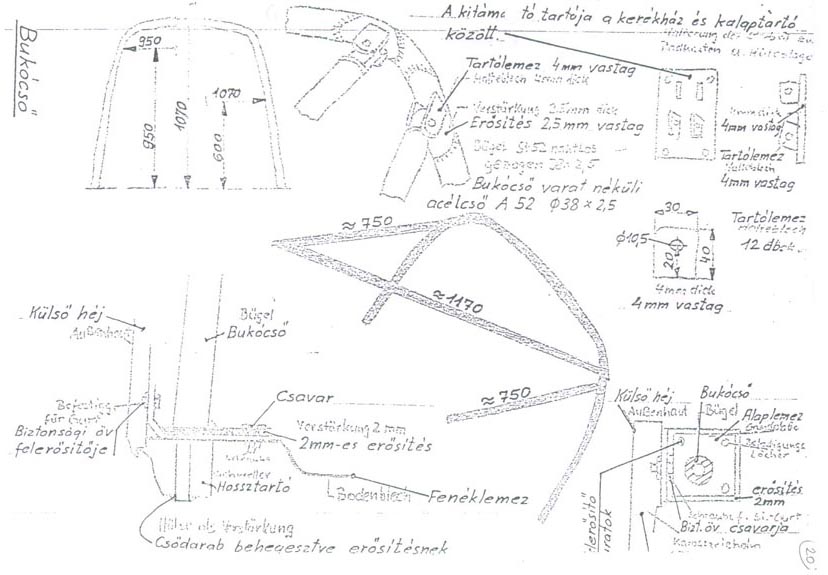 Bukócső
950
950
1070
1070
600
A kitámasztó tartója a kerékház és kalaptartó
között.
Halterung der
Radkasten u. Hutablage
Tartólemez 4mm vastag
Halteblech 4mm dick
Verstärkung 2,5mm dick
Erősítés 2,5 mm vastag
Bügel St 52 nahtlos
gezogen 38x2,5
Bukócső varat nélküli
acélcső A 52 Φ38 × 2,5
4mm dick
4mm vastag
Tartólemez
Halteblech
4mm vastag
30
Φ10,5
20
40
Tartólemez
Halteblech
12 dbck.
4mm dick
4mm vastag
≈750
≈1170
≈750
Külső héj
Außenhaut
Bügel
Bukócső
Befestig.
für Gurt
Biztonsági öv
felerősítője
Csavar
Verstärkung 2mm
2mm-es erősítés
Schweller
Hossztartó
Bodenblech
Fenéklemez
Hülse als Verstärkung
Csődarab behegesztve erősítésnek
Külső héj
Außenhaut
Bukócső
Bügel
Alaplemez
Grundplatte
Löcher
erősítés
2mm
Bizt.öv csavarja
20